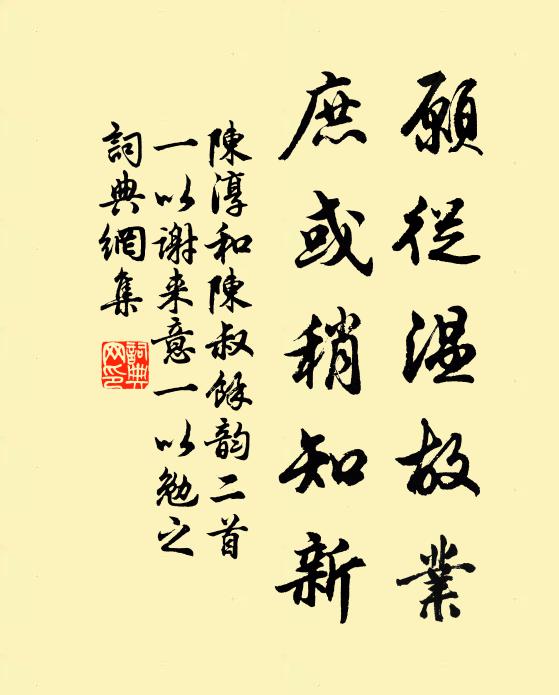 願從温故業
庶或稍知新
陳淳和陳叔餘韵二首
一以谢来意一以勉之
詞典網集
詞典
网印